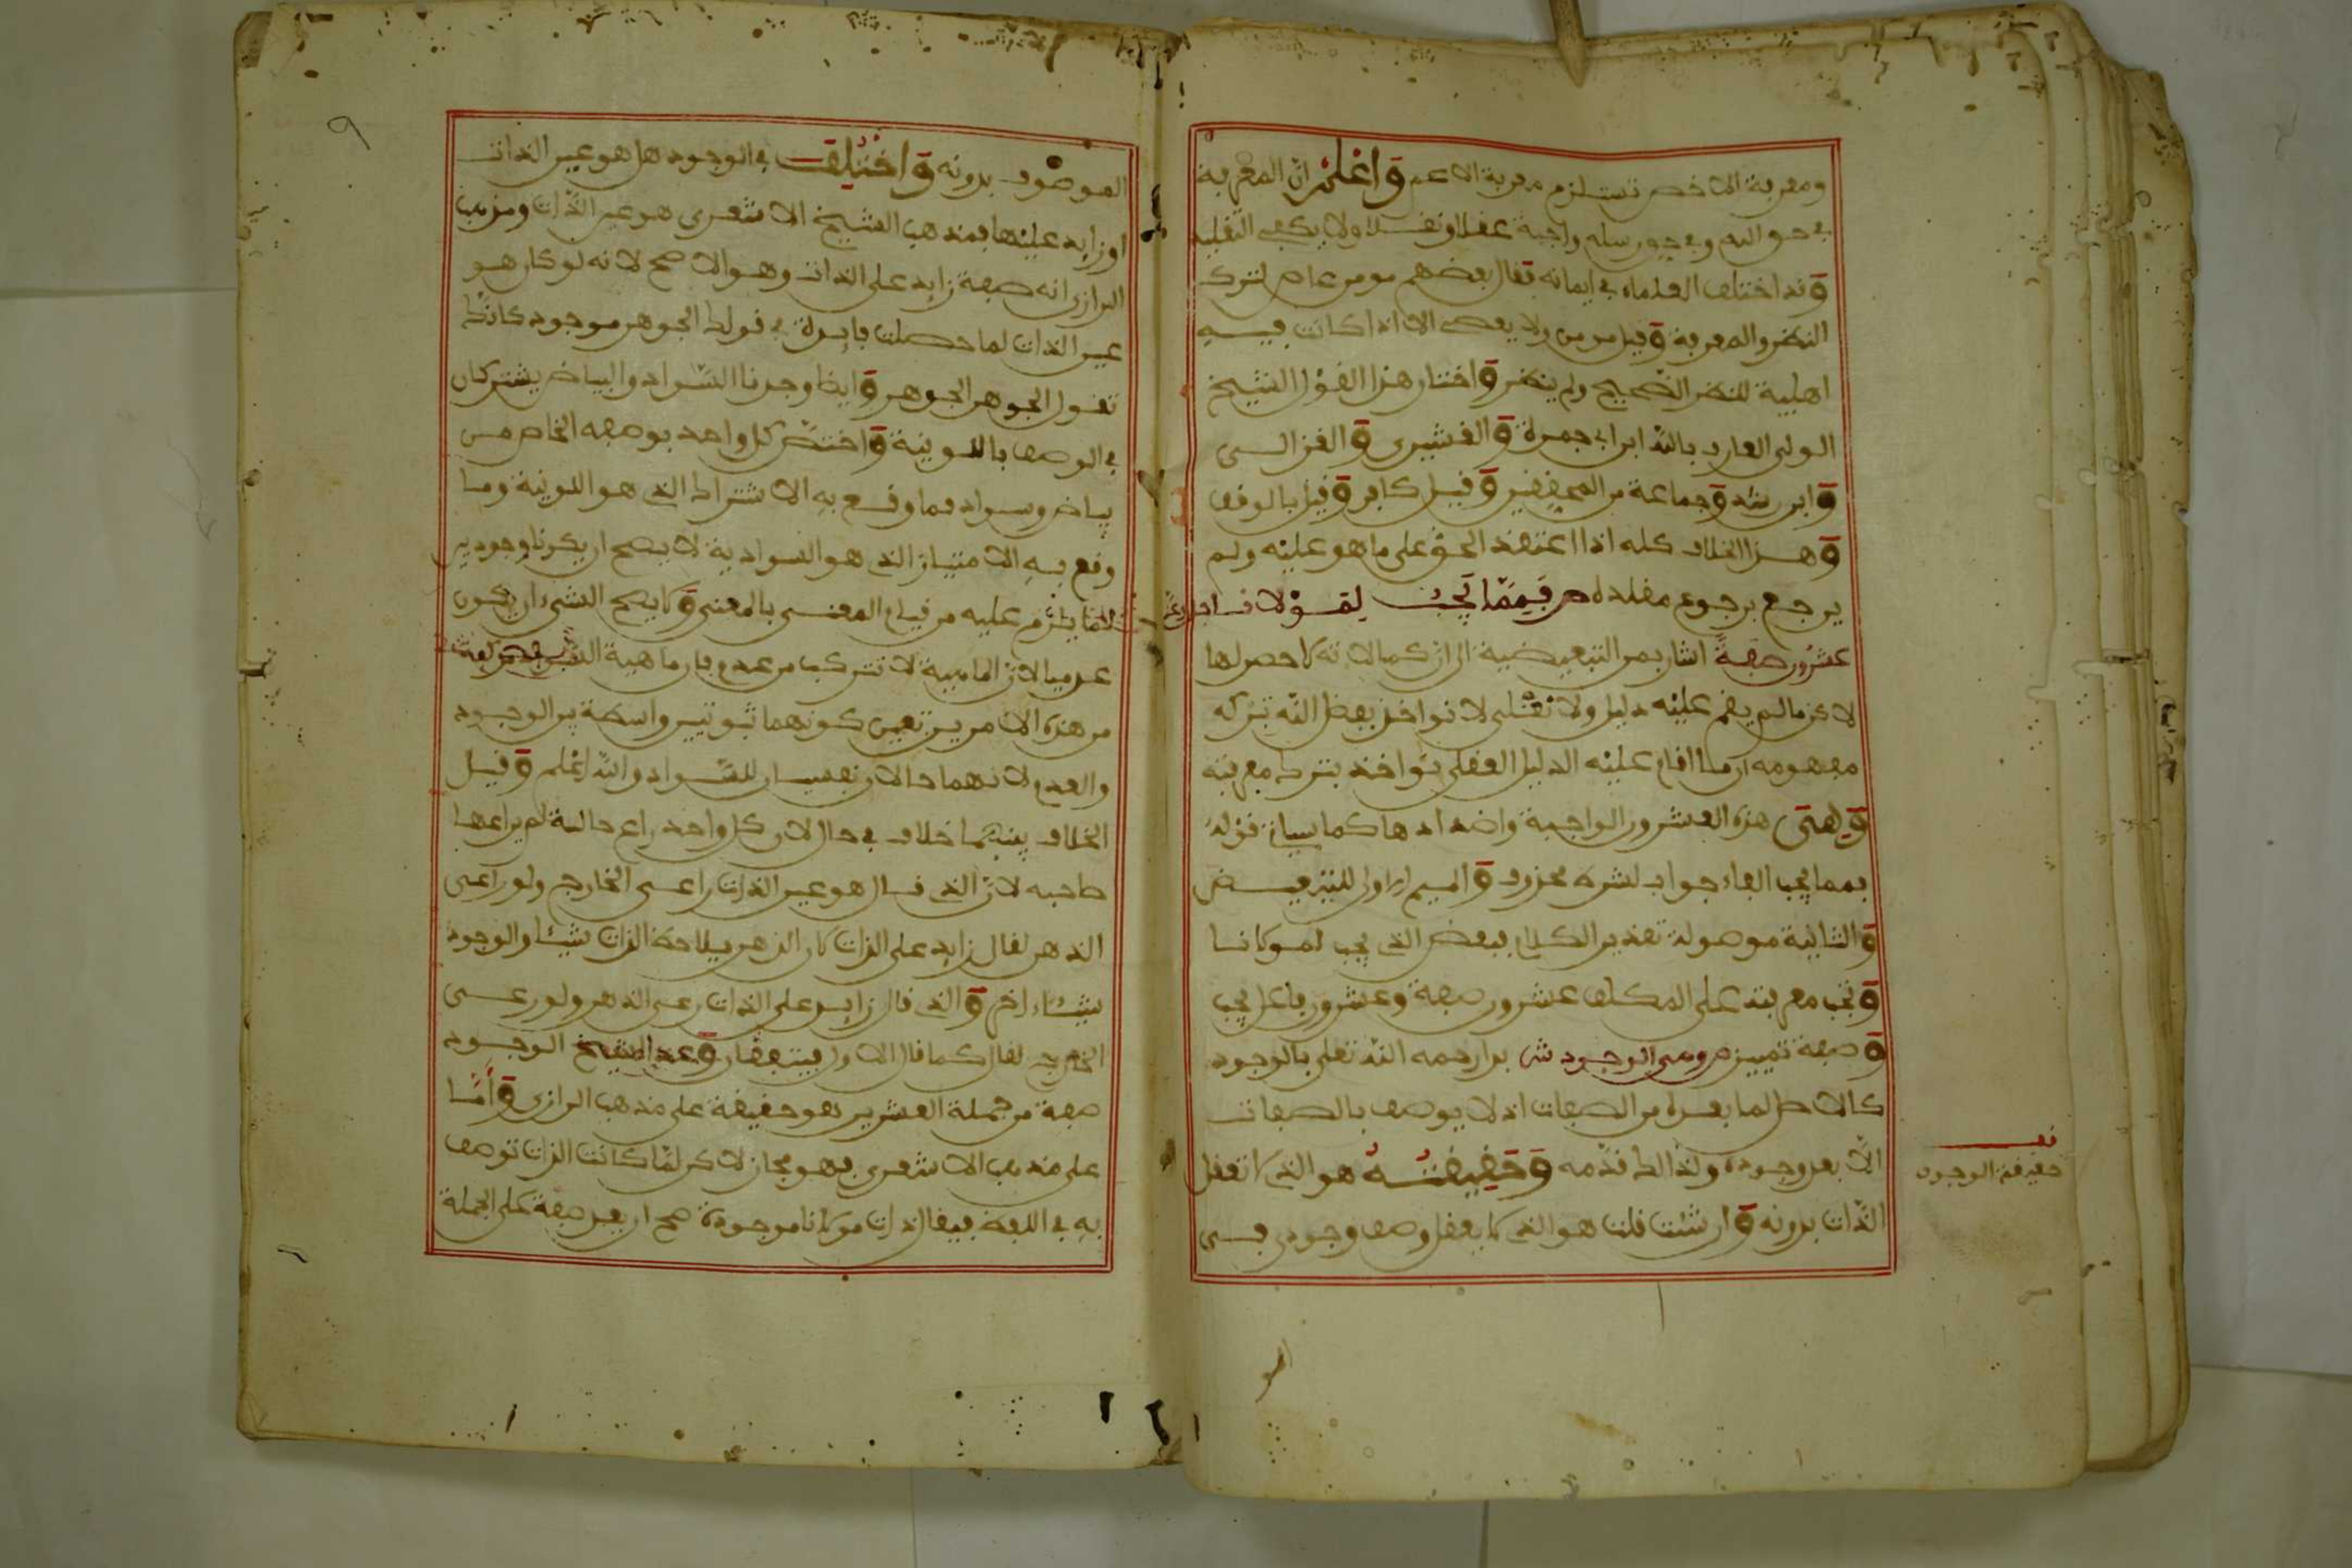 ومعرفة الاخص تستلزم معرفة الاعم واعلم ان المعرفة
في حق الله وفي حق رسله واجبة عقلا ونقلا ولا يكفي التقليد
وقد اختلف العلماء في ايمانه فقال بعضهم مومن عاص لترك
النظر والمعرفة وقيل مومن ولا يعصي الا اذا كانت فيه
اهلية للنظر الصحيح ولم ينظر واختار هذا القول الشيخ
الولي العارف بالله ابن ابي جمرة والقشيري والغزالي
وابن رشد وجماعة من المحققين وقيل كافر وقيل بالوقف
وهذا الخلاف كله اذا اعتقد الحق على ما هو عليه ولم
يرجع برجوع مقلده ص فمما يجب لمولانا جل وعز
عشرون صفة اشار بمن التبعيضية الى ان كمالاته لا حصر لها
لاكن ما لم يقم عليه دليل ولا نقلي لا نواخذ بفضل الله بتركه
مفهومه ان ما اقام عليه الدليل العقلي نواخذ بترك معرفته
وهي هذه العشرون الواجبة واضدادها كما سياتي قوله
فمما يجب الفاء جواب لشرط محذوف والميم الاولى للتبعيض
والثانية موصولة تقدير الكلام فبعض الذي يجب لمولانا
وتجب معرفته على المكلف عشرون صفة وعشرون فاعل يجب
وصفة تمييز ص وهي الوجود ش بدا رحمه الله تعلى بالوجود
كالاصل لما بعده من الصفات اذ لا يوصف بالصفات
الا بعد وجوده ولذالك قدمه وحقيقته هو الذي لا تعقل
الذات بدونه وان شئت قلت هو الذي لا يعقل وصف وجودي في
قف
حقيقة الوجود
الموصوف بدونه واختلف في الوجود هل هو عين الذات
او زايد عليها فمذهب الشيخ الاشعري هو عين الذات ومذهب
الرازي انه صفة زايد على الذات وهو الاصح لانه لو كان هو
عين الذات لما حصلت فايدة في قولك الجوهر موجود كانك
تقول الجوهر الجوهر وايضا وجدنا السواد والبياض يشتركان
في الوصف باللونية واختص كل واحد بوصفه الخاص من
بياض وسواد فما وقع به الاشتراك الذي هو اللونية وما
وقع به الامتياز الذي هو السوادية لا يصح ان يكونا وجوديين
لما يلزم عليه من قيام المعنى بالمعنى ولا يصح الشيء ان يكون
عدميا لان الماهية لا تتركب من عدم فان ماهية
من هذه الامرين تعين كونهما ثبوتيين واسطة بين الوجود
والعدم لانهما حالان نفسيان للسواد والله اعلم وقيل
الخلاف بينهما خلاف في حال لان كل واحد راع حالة لم يراعها
صاحبه لان الذي قال هو عين الذات راعى الخارج ولو راعى
الذهن لقال زايد على الذات لان الذهن يلاحظ الذات شيئا والوجود
شيئا اخر والذي قال زايد على الذات رعى الذهن ولو رعى
الخارج لقال كما قال الاول فيتفقان وعد الشيخ الوجود
صفة من جملة العشرين هو حقيقة على مذهب الرازي واما
على مذهب الاشعري فهو مجاز لاكن لما كانت الذات توصف
به في اللفظ فيقال ذات مولانا موجودة صح ان يعد صفة على الجملة
٩